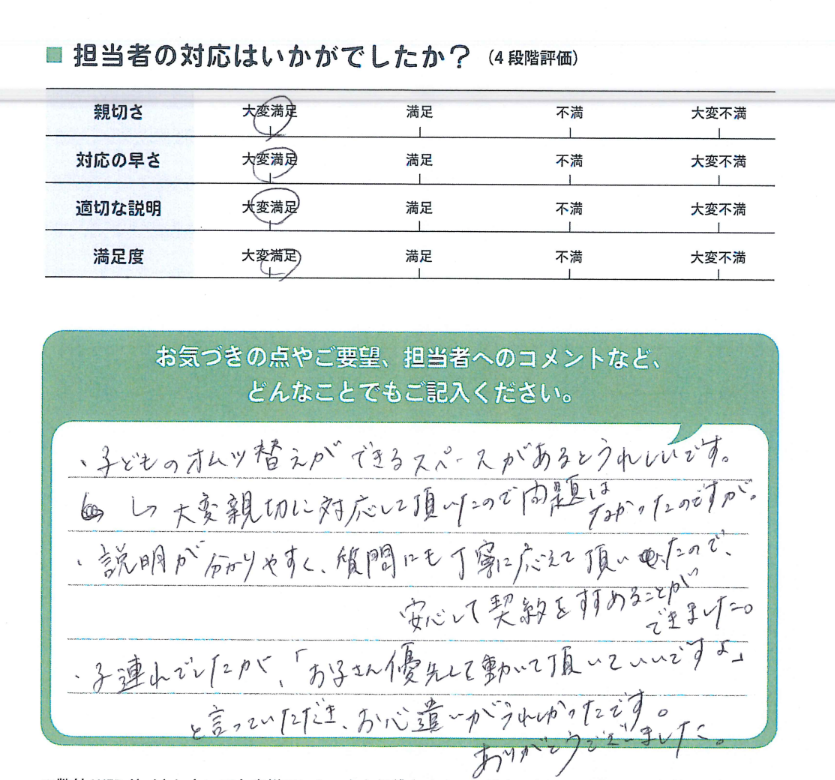 ■ 担当者の対応はいかがでしたか？（4段階評価）
親切さ 大変満足 満足 不満 大変不満
対応の早さ 大変満足 満足 不満 大変不満
適切な説明 大変満足 満足 不満 大変不満
満足度 大変満足 満足 不満 大変不満
お気づきの点やご要望、担当者へのコメントなど、
どんなことでもご記入ください。
・子どものオムツ替えができるスペースがあるとうれしいです。
↳ 大変親切に対応して頂いたので問題は
なかったのですが。
・説明が分かりやすく、質問にも丁寧に応えて頂いたので、
安心して契約をすすめることが
できました。
・子連れでしたが、「お子さん優先して動いて頂いていいですよ」
と言っていただき、お心遣いがうれしかったです。
ありがとうございました。